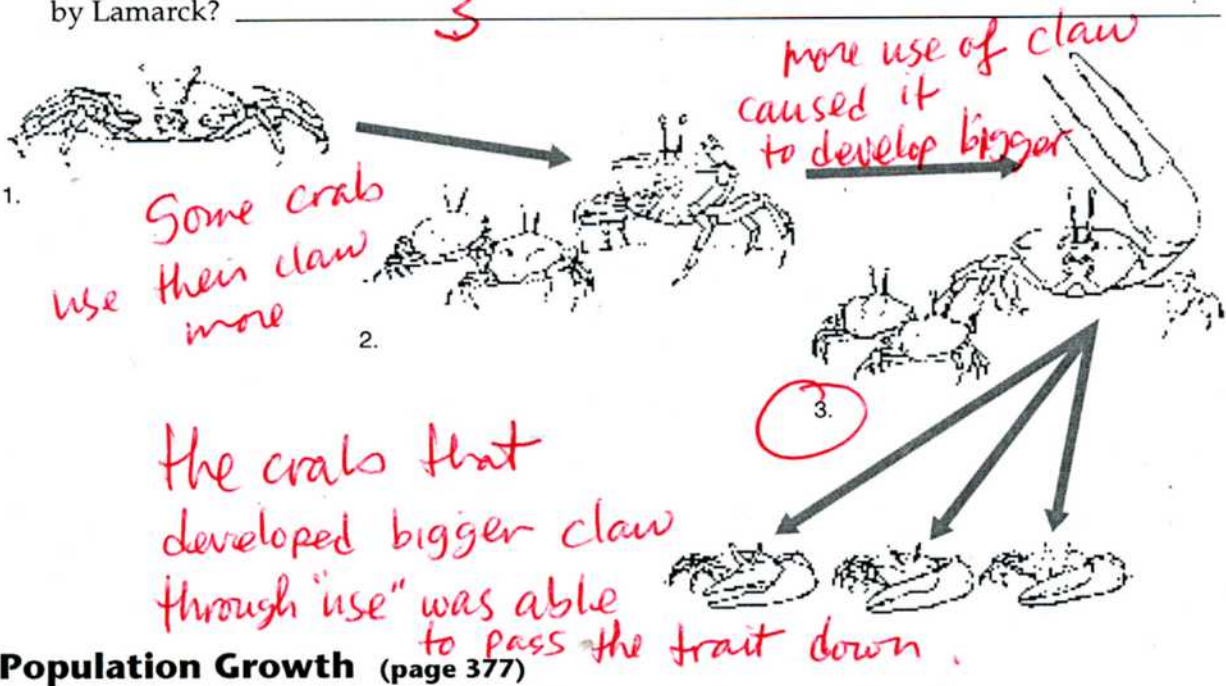 by Lamarck?
3
more use of claw
caused it
to develop bigger
1.
Some crabs
use their claw
more
2.
3.
the crabs that
developed bigger claw
through "use" was able
to pass the trait down.
Population Growth (page 377)